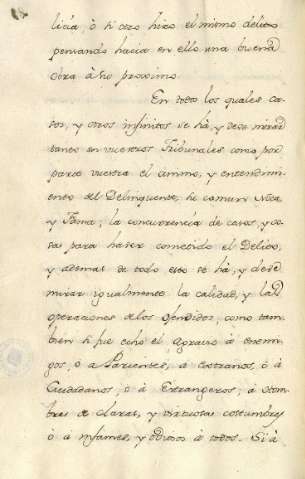 licia, ò si cero hizo el mismo delito
pensando hacia en ello una buena
obra à su proximo.
En todos los quales ca-
sos, y otros infinitos se hà, y deve mirar
tanto en vuestros Tribunales como por
parte vuestra el animo, y entendimi-
ento del Delinquente, su comun Vida
y Fama, la concurrencia de casos, y co-
sas para haver cometido el Delito,
y ademas de todo esto se hà, y deve
mirar igualmente la calidad, y las
operaciones de los ofendidos, como tam-
bien si fue echo el Agravio à enemi-
gos, ò à Parientes, à extraños, ò à
Ciudadanos, ò à Extrangeros; à Hom-
bres de claras, y virtuosas costumbres
ò à infames, y odiosos à todos. Si à